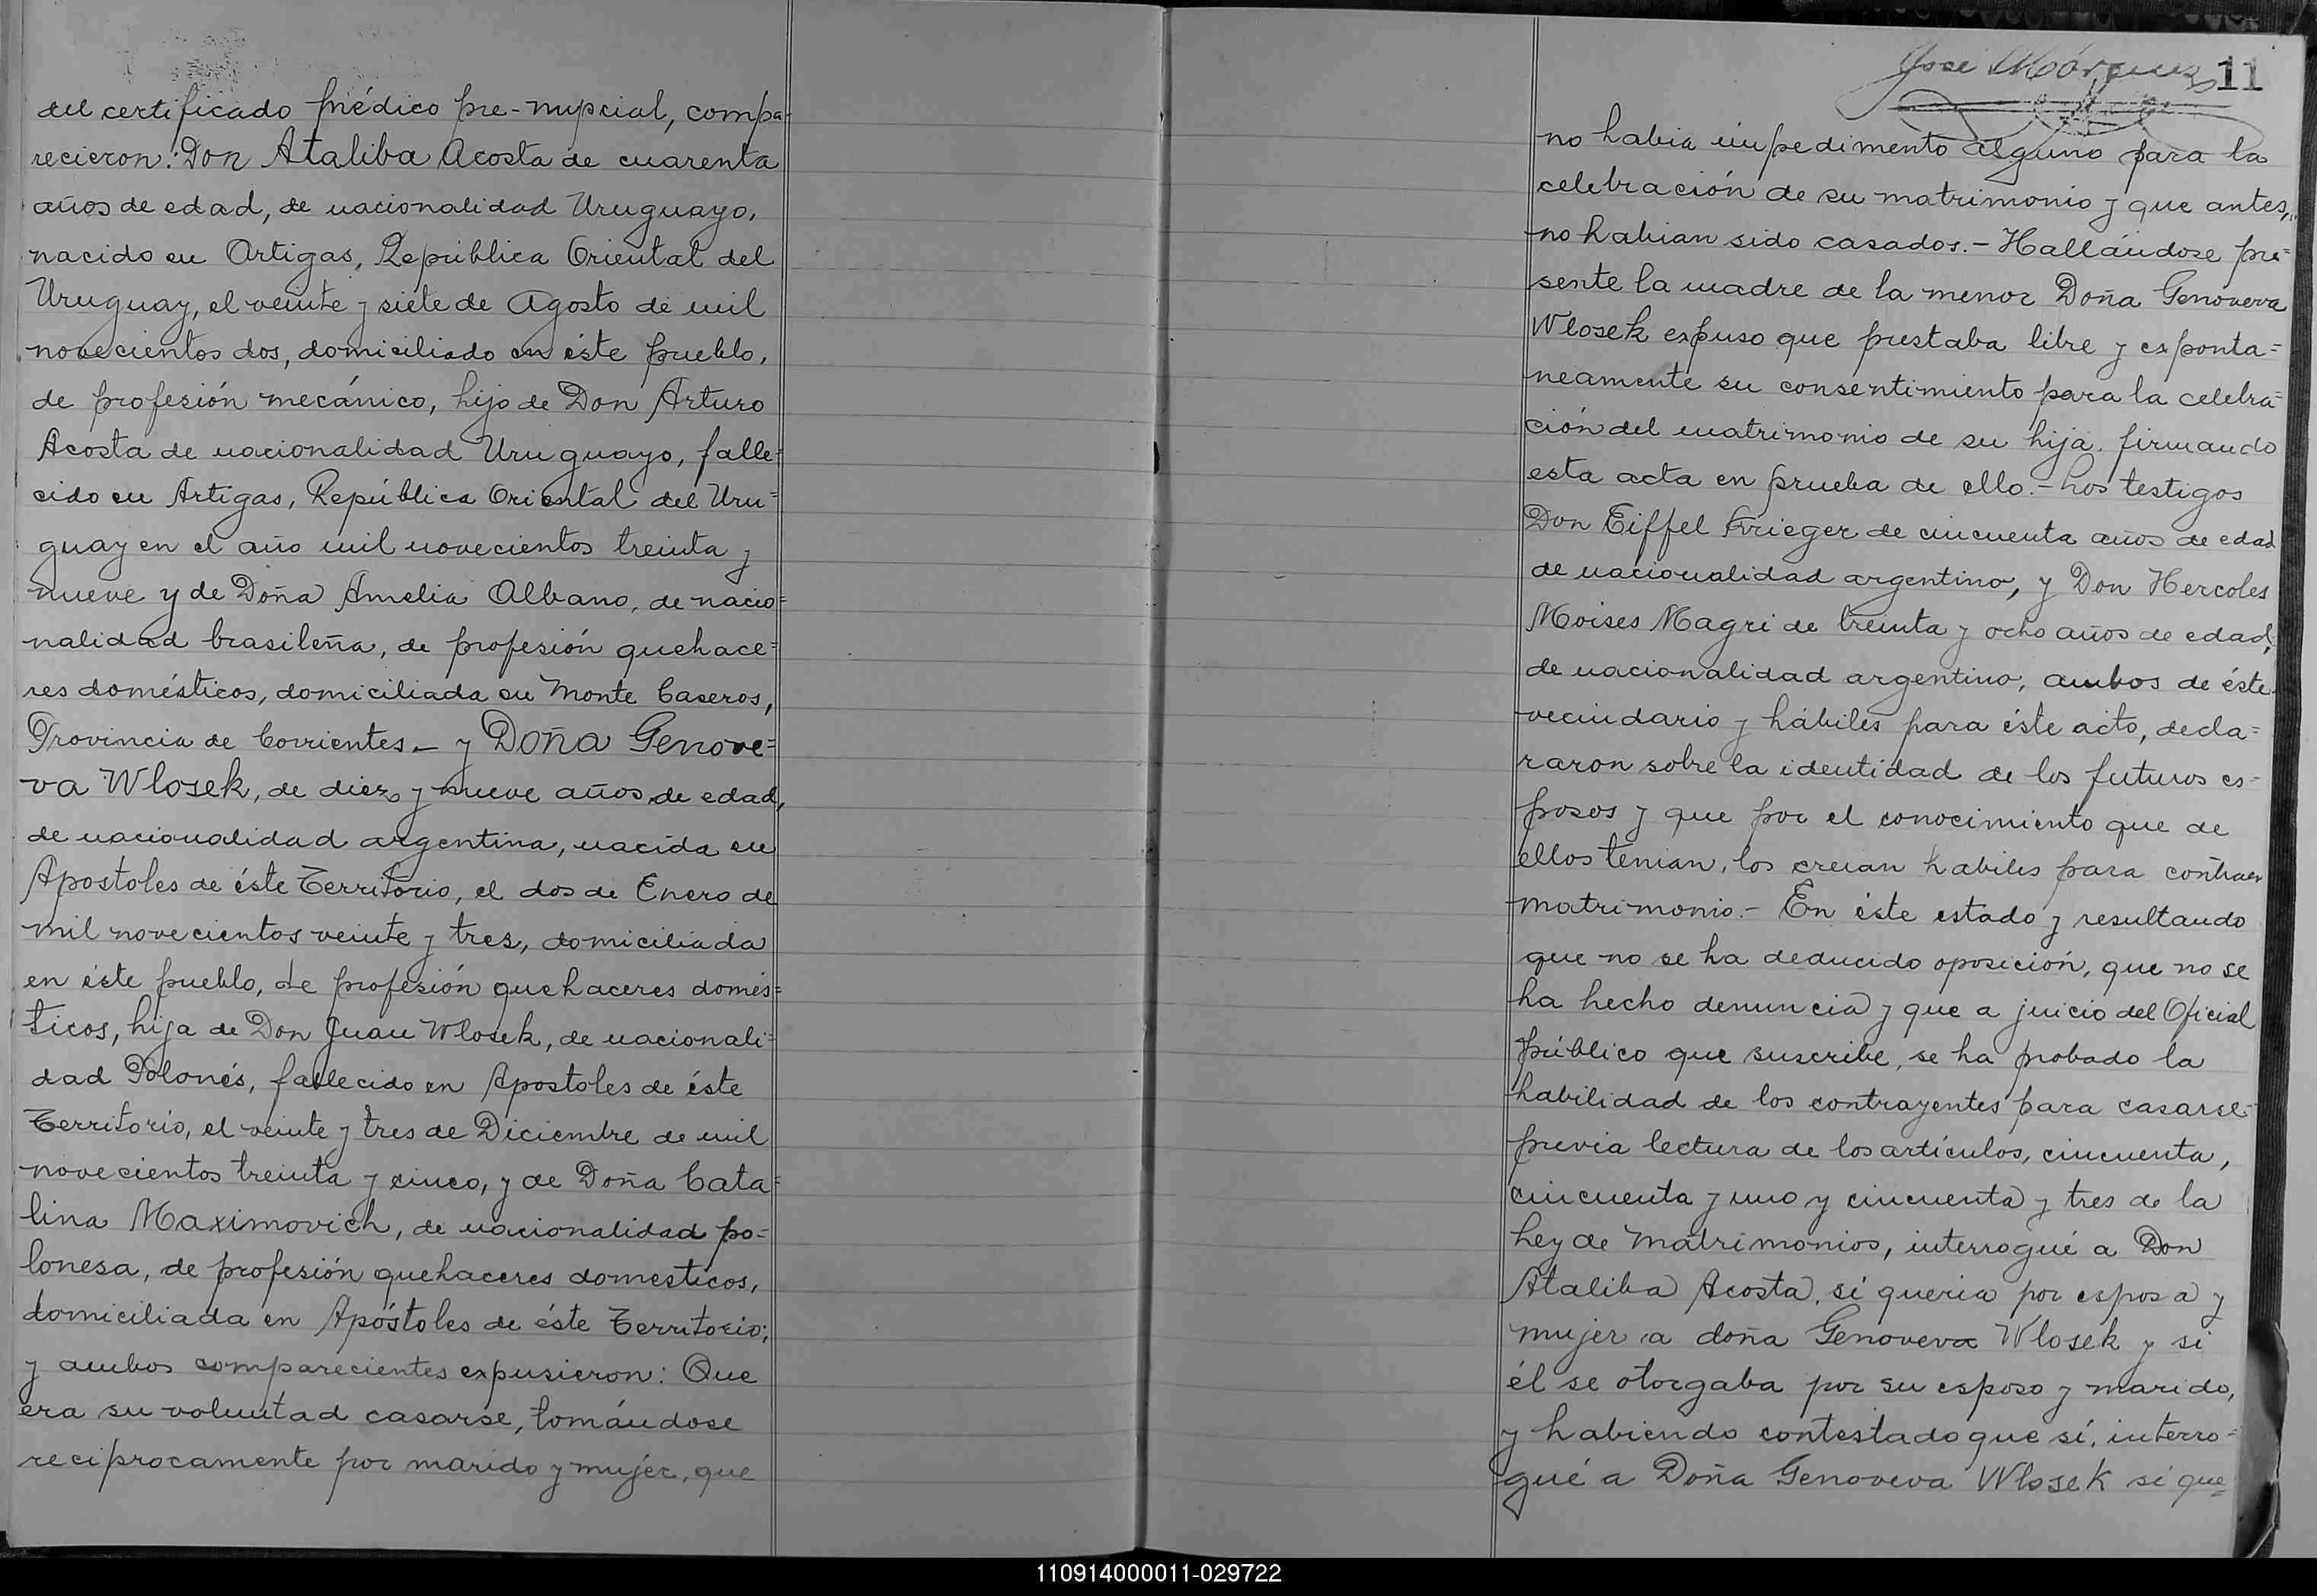 del certificado médico pre-nupcial, compa-
recieron: Don Ataliba Acosta de cuarenta
años de edad, de nacionalidad Uruguayo,
nacido en Artigas, República Oriental del
Uruguay, el veinte y siete de Agosto de mil
novecientos dos, domiciliado en éste pueblo,
de profesión mecánico, hijo de Don Arturo
Acosta de nacionalidad Uruguayo, falle=
cido en Artigas, República Oriental del Uru=
guay en el año mil novecientos treinta y
nueve y de Doña Amelia Albano, de nacio=
nalidad brasileña, de profesión quehace=
res domésticos, domiciliada en Monte Caseros,
Provincia de Corrientes.- y Doña Genove=
va Wlosek, de diez y nueve años de edad,
de nacionalidad argentina, nacida en
Apostoles de éste Territorio, el dos de Enero de
mil novecientos veinte y tres, domiciliada
en éste pueblo, de profesión quehaceres domés=
ticos, hija de Don Juan Wlosek, de nacionali=
dad Polonés, fallecido en Apostoles de éste
Territorio, el veinte y tres de Diciembre de mil
novecientos treinta y cinco, y de Doña Cata=
lina Maximovich, de nacionalidad po=
lonesa, de profesión quehaceres domesticos,
domiciliada en Apóstoles de éste Territorio;
y ambos comparecientes expusieron: Que
era su voluntad casarse, tomándose
reciprocamente por marido y mujer, que
José Márquez 11
no habia impedimento alguno para la
celebración de su matrimonio y que antes,
no habian sido casados.- Hallándose pre=
sente la madre de la menor Doña Genoveva
Wlosek expuso que prestaba libre y exponta=
neamente su consentimiento para la celebra=
ción del matrimonio de su hija, firmando
esta acta en prueba de ello.- Los testigos
Don Eiffel Krieger de cincuenta años de edad
de nacionalidad argentino, y Don Hercoles
Moises Magri de treinta y ocho años de edad,
de nacionalidad argentino, ambos de éste
vecindario y hábiles para éste acto, decla=
raron sobre la identidad de los futuros es-
posos y que por el conocimiento que de
ellos tenian, los creian habiles para contraer
matrimonio.- En éste estado y resultando
que no se ha deducido oposición, que no se
ha hecho denuncia y que a juicio del Oficial
público que suscribe, se ha probado la
habilidad de los contrayentes para casarse-
previa lectura de los artículos, cincuenta,
cincuenta y uno y cincuenta y tres de la
Ley de Matrimonios, interrogué a Don
Ataliba Acosta, si queria por esposa y
mujer a doña Genoveva Wlosek y si
él se otorgaba por su esposo y marido,
y habiendo contestado que sí, interro-
gué a Doña Genoveva Wlosek si que=
110914000011-029722